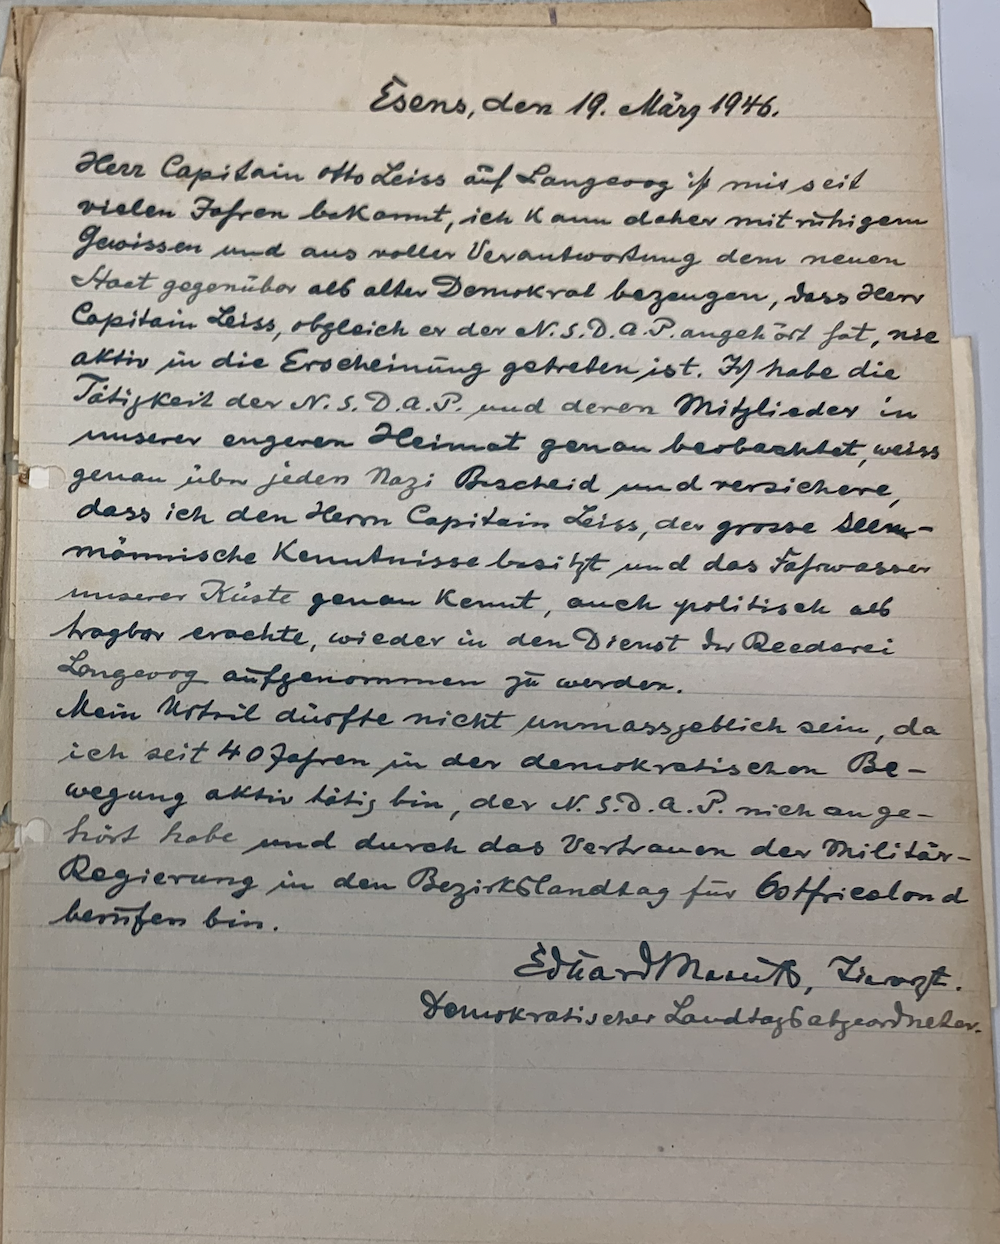 Esens, den 19. März 1946.
Herr Capitain Otto Leiss auf Langeoog ist mir seit
vielen Jahren bekannt, ich kann daher mit ruhigem
Gewissen und aus voller Verantwortung dem neuen
Staat gegenüber als alter Demokrat bezeugen, dass Herr
Capitain Leiss, obgleich er der N.S.D.A.P. angehört hat, nie
aktiv in die Erscheinung getreten ist. Ich habe die
Tätigkeit der N.S.D.A.P. und deren Mitglieder in
unserer engeren Heimat genau beobachtet, weiss
genau über jeden Nazi Bescheid und versichere,
dass ich den Herrn Capitain Leiss, der grosse
männische Kenntnisse besitzt und das Fahrwasser
unserer Küste genau kennt, auch politisch als
tragbar erachte, wieder in den Dienst der Reederei
Langeoog aufgenommen zu werden.
Mein Urteil dürfte nicht unmassgeblich sein, da
ich seit 40 Jahren in der demokratischen Be-
wegung aktiv tätig bin, der N.S.D.A.P. nich ange-
hört habe und durch das Vertrauen der Militär-
Regierung in den Bezirkslandtag für Ostfriesland
berufen bin.
Eduard, Tierarzt.
Demokratischer Landtagsabgeordneter.